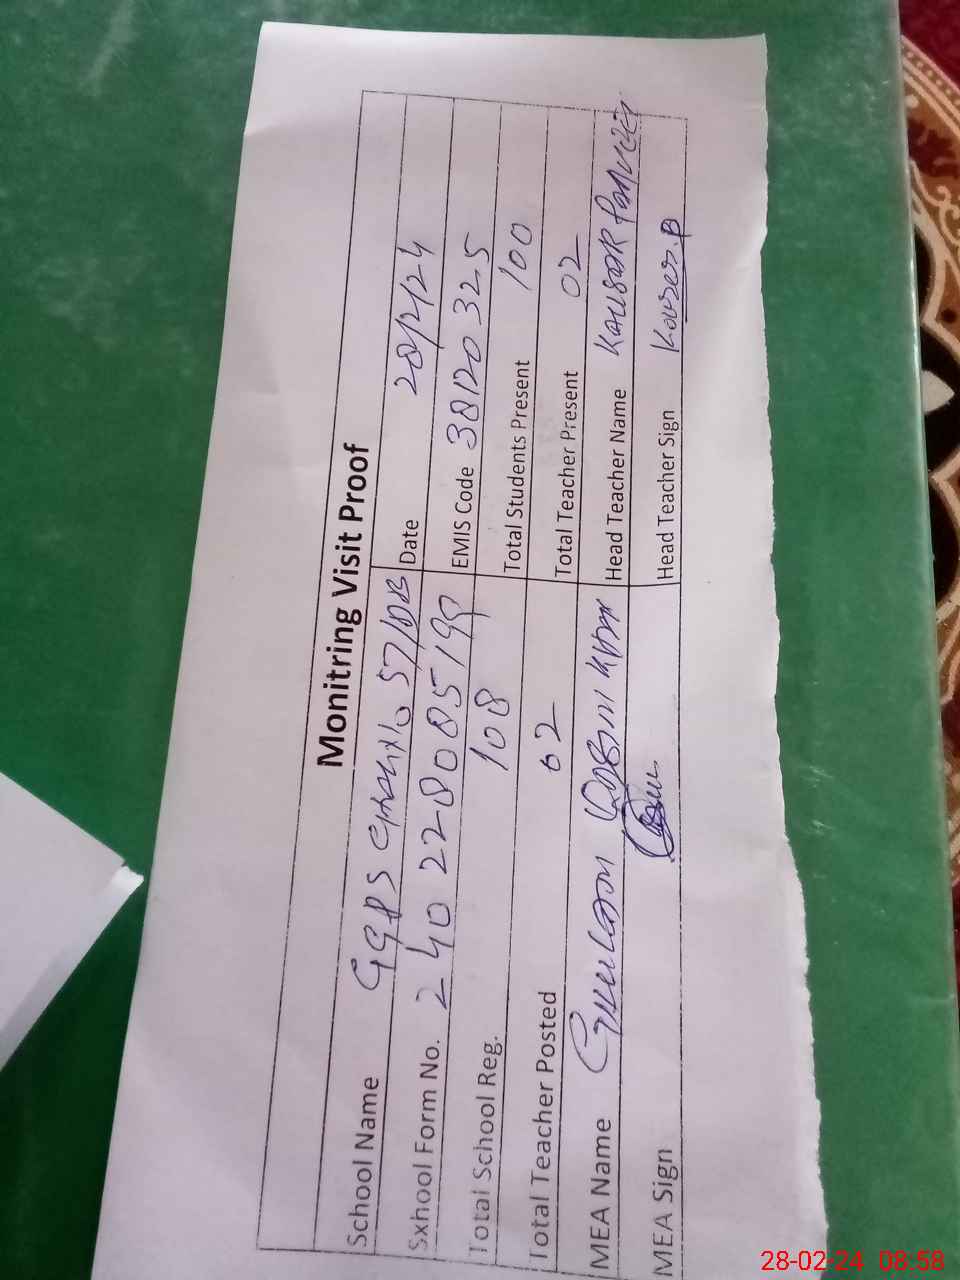 Monitring Visit Proof
School Name GGPS 57/DB
Date 28/2/24
Sxhool Form No. 240 228085198
EMIS Code 38120325
Total School Reg. 108
Total Students Present 100
Total Teacher Posted 02
Total Teacher Present 02
MEA Name
Head Teacher Name Kausar Parveen
MEA Sign
Head Teacher Sign Kouser.P
28-02-24 08:58